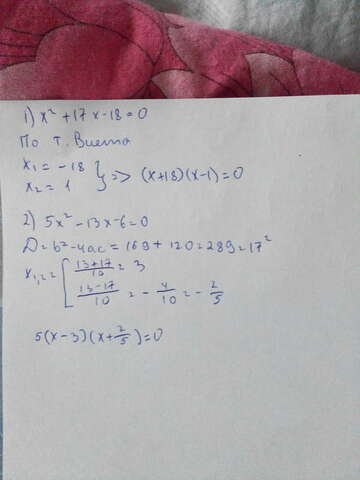 1) x² + 17x - 18 = 0
По т. Виета
x₁ = -18
x₂ = 1 } => (x+18)(x-1) = 0
2) 5x² - 13x - 6 = 0
D = b² - 4ac = 169 + 120 = 289 = 17²
x₁,₂ = [ (13+17)/10 = 3
(13-17)/10 = -4/10 = -2/5
5(x-3)(x+2/5) = 0